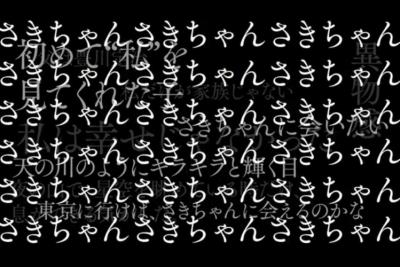 さきちゃんさきちゃんさきちゃん
初めて“私”を
さきちゃんさきちゃんさきちゃん
見てくれた
異物
家族じゃない
さきちゃんさきちゃんさきちゃん
私は幸せ
さきちゃんに会いたい
さきちゃんさきちゃんさきちゃん
天の川のようにキラキラと輝く目
さきちゃんさきちゃんさきちゃん
東京に行けば、さきちゃんに会えるのかな
さきちゃんさきちゃんさきちゃん